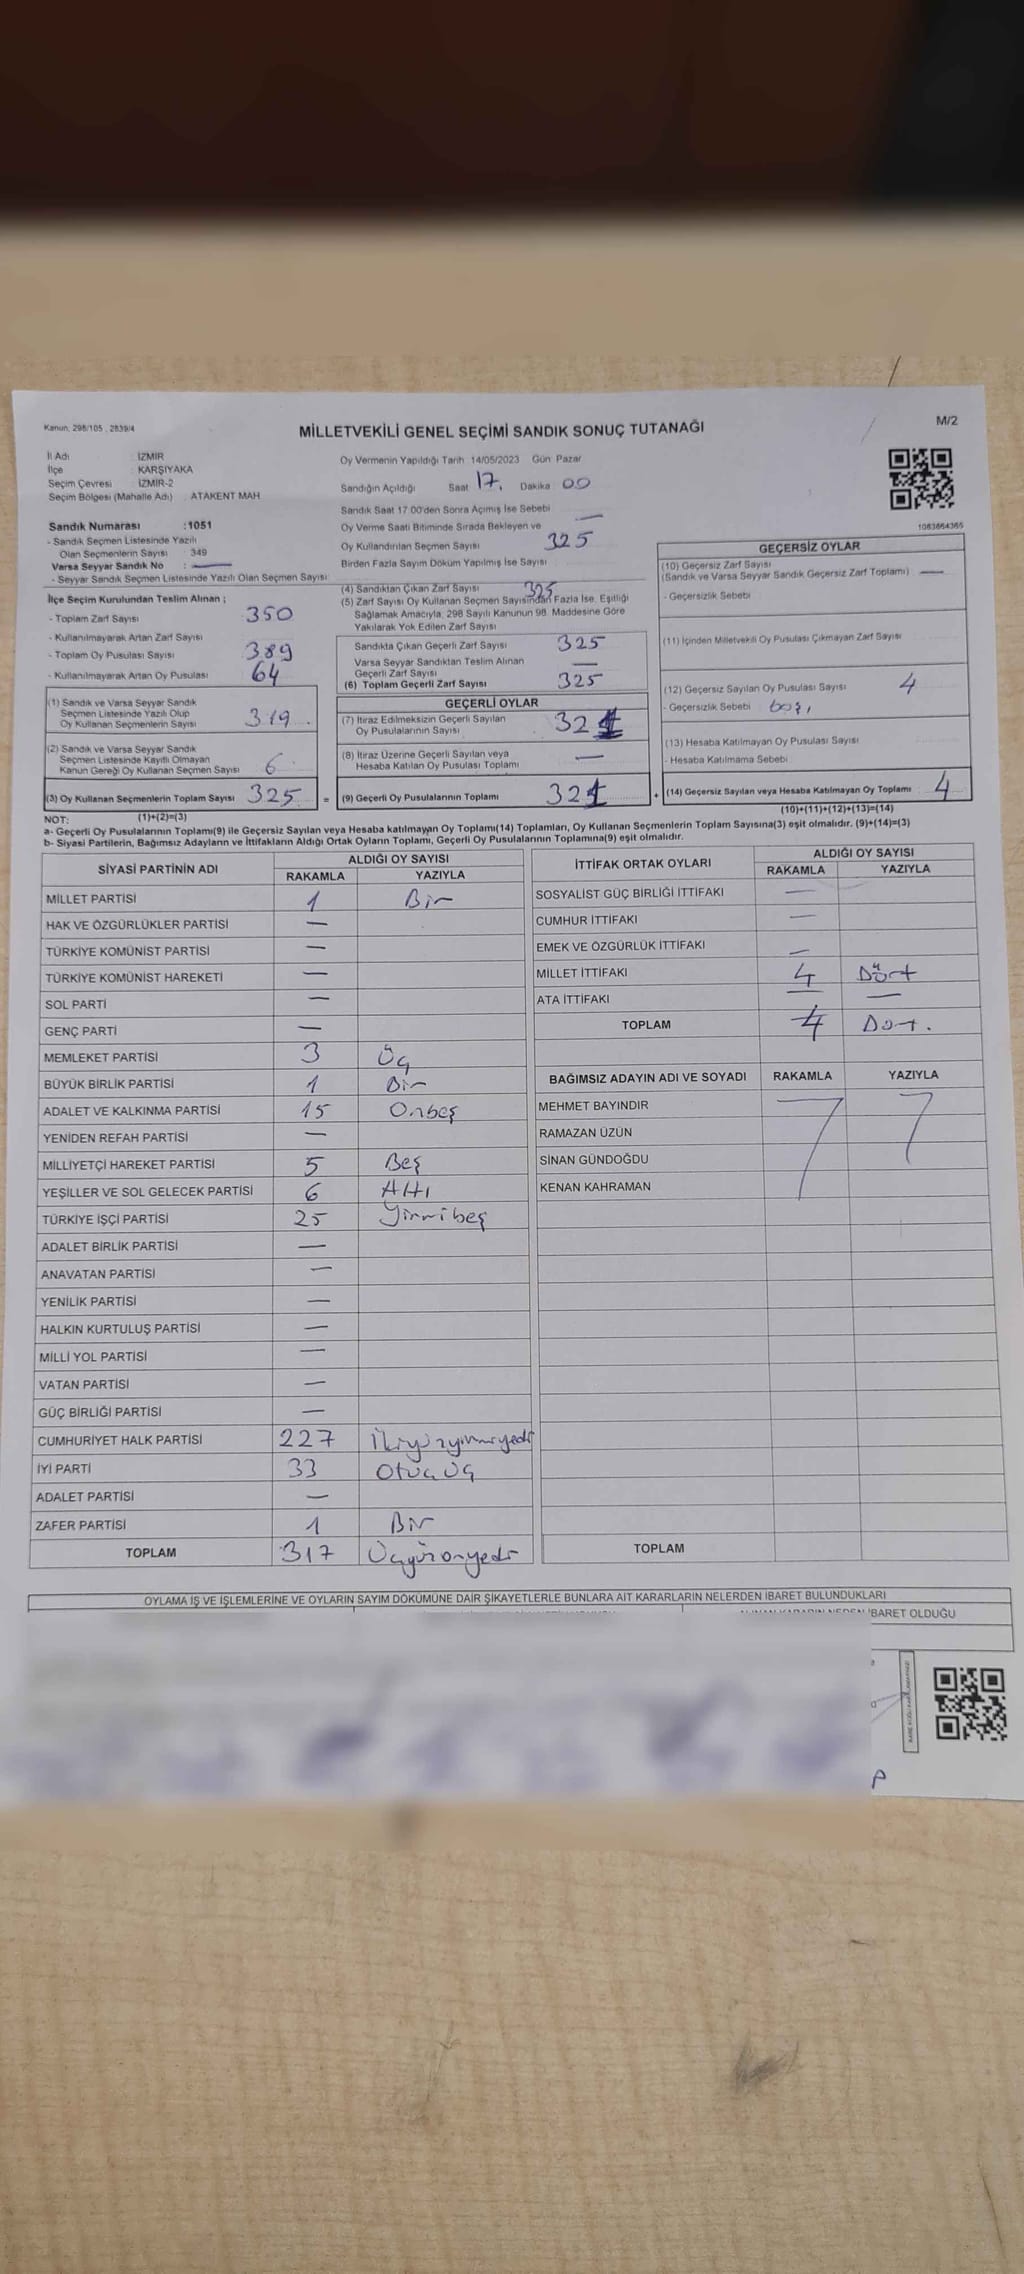 Kanun: 298/105 , 2839/4
MİLLETVEKİLİ GENEL SEÇİMİ SANDIK SONUÇ TUTANAĞI
M/2
İl Adı : İZMİR
İlçe : KARŞIYAKA
Seçim Çevresi : İZMİR-2
Seçim Bölgesi (Mahalle Adı) : ATAKENT MAH
Sandık Numarası : 1051
- Sandık Seçmen Listesinde Yazılı
Olan Seçmenlerin Sayısı : 349
Varsa Seyyar Sandık No : —
- Seyyar Sandık Seçmen Listesinde Yazılı Olan Seçmen Sayısı:
İlçe Seçim Kurulundan Teslim Alınan ;
- Toplam Zarf Sayısı 350
- Kullanılmayarak Artan Zarf Sayısı
- Toplam Oy Pusulası Sayısı 389
- Kullanılmayarak Artan Oy Pusulası 64
(1) Sandık ve Varsa Seyyar Sandık
Seçmen Listesinde Yazılı Olup
Oy Kullanan Seçmenlerin Sayısı 319
(2) Sandık ve Varsa Seyyar Sandık
Seçmen Listesinde Kayıtlı Olmayan
Kanun Gereği Oy Kullanan Seçmen Sayısı 6
(3) Oy Kullanan Seçmenlerin Toplam Sayısı 325 =
(1)+(2)=(3)
Oy Vermenin Yapıldığı Tarih 14/05/2023 Gün Pazar
Sandığın Açıldığı Saat 17. Dakika 00
Sandık Saat 17:00'den Sonra Açımış İse Sebebi —
Oy Verme Saati Bitiminde Sırada Bekleyen ve
Oy Kullandırılan Seçmen Sayısı 325
Birden Fazla Sayım Döküm Yapılmış İse Sayısı
(4) Sandıktan Çıkan Zarf Sayısı 325
(5) Zarf Sayısı Oy Kullanan Seçmen Sayısından Fazla İse, Eşitliği
Sağlamak Amacıyla, 298 Sayılı Kanunun 98. Maddesine Göre
Yakılarak Yok Edilen Zarf Sayısı
Sandıkta Çıkan Geçerli Zarf Sayısı 325
Varsa Seyyar Sandıktan Teslim Alınan
Geçerli Zarf Sayısı —
(6) Toplam Geçerli Zarf Sayısı 325
GEÇERLİ OYLAR
(7) İtiraz Edilmeksizin Geçerli Sayılan
Oy Pusulalarının Sayısı 321
(8) İtiraz Üzerine Geçerli Sayılan veya
Hesaba Katılan Oy Pusulası Toplamı —
(9) Geçerli Oy Pusulalarının Toplamı 321 +
1063664365
GEÇERSİZ OYLAR
(10) Geçersiz Zarf Sayısı
(Sandık ve Varsa Seyyar Sandık Geçersiz Zarf Toplamı) —
- Geçersizlik Sebebi
(11) İçinden Milletvekili Oy Pusulası Çıkmayan Zarf Sayısı
(12) Geçersiz Sayılan Oy Pusulası Sayısı 4
- Geçersizlik Sebebi boş,
(13) Hesaba Katılmayan Oy Pusulası Sayısı
- Hesaba Katılmama Sebebi
(14) Geçersiz Sayılan veya Hesaba Katılmayan Oy Toplamı 4
(10)+(11)+(12)+(13)=(14)
NOT:
a- Geçerli Oy Pusulalarının Toplamı(9) ile Geçersiz Sayılan veya Hesaba katılmayan Oy Toplamı(14) Toplamları, Oy Kullanan Seçmenlerin Toplam Sayısına(3) eşit olmalıdır. (9)+(14)=(3)
b- Siyasi Partilerin, Bağımsız Adayların ve İttifakların Aldığı Ortak Oyların Toplamı, Geçerli Oy Pusulalarının Toplamına(9) eşit olmalıdır.
SİYASİ PARTİNİN ADI ALDIĞI OY SAYISI
RAKAMLA YAZIYLA
MİLLET PARTİSİ 1 Bir
HAK VE ÖZGÜRLÜKLER PARTİSİ —
TÜRKİYE KOMÜNİST PARTİSİ —
TÜRKİYE KOMÜNİST HAREKETİ —
SOL PARTİ —
GENÇ PARTİ —
MEMLEKET PARTİSİ 3 Üç
BÜYÜK BİRLİK PARTİSİ 1 Bir
ADALET VE KALKINMA PARTİSİ 15 Onbeş
YENİDEN REFAH PARTİSİ —
MİLLİYETÇİ HAREKET PARTİSİ 5 Beş
YEŞİLLER VE SOL GELECEK PARTİSİ 6 Altı
TÜRKİYE İŞÇİ PARTİSİ 25 Yirmibeş
ADALET BİRLİK PARTİSİ —
ANAVATAN PARTİSİ —
YENİLİK PARTİSİ —
HALKIN KURTULUŞ PARTİSİ —
MİLLİ YOL PARTİSİ —
VATAN PARTİSİ —
GÜÇ BİRLİĞİ PARTİSİ —
CUMHURİYET HALK PARTİSİ 227 İkiyüzyirmiyedi
İYİ PARTİ 33 Otuzüç
ADALET PARTİSİ —
ZAFER PARTİSİ 1 Bir
TOPLAM 317 Üçyüzonyedi
İTTİFAK ORTAK OYLARI ALDIĞI OY SAYISI
RAKAMLA YAZIYLA
SOSYALİST GÜÇ BİRLİĞİ İTTİFAKI —
CUMHUR İTTİFAKI —
EMEK VE ÖZGÜRLÜK İTTİFAKI —
MİLLET İTTİFAKI 4 Dört
ATA İTTİFAKI — —
TOPLAM 4 Dört.
BAĞIMSIZ ADAYIN ADI VE SOYADI RAKAMLA YAZIYLA
MEHMET BAYINDIR
RAMAZAN ÜZÜN
SİNAN GÜNDOĞDU
KENAN KAHRAMAN
TOPLAM
OYLAMA İŞ VE İŞLEMLERİNE VE OYLARIN SAYIM DÖKÜMÜNE DAİR ŞİKAYETLERLE BUNLARA AİT KARARLARIN NELERDEN İBARET BULUNDUKLARI
İBARET OLDUĞU
P